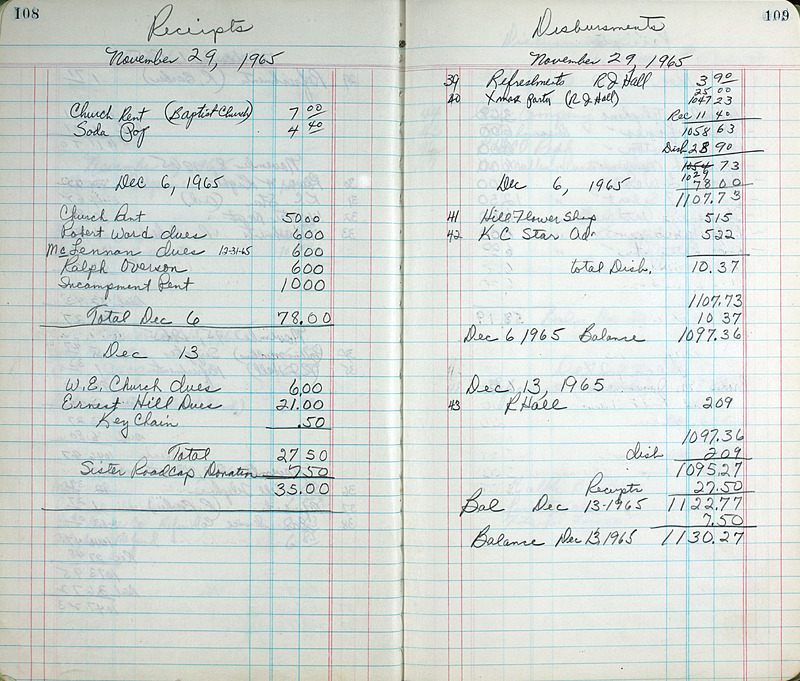 108
Receipts
November 29, 1965
Church Rent (Baptist Church) 7 00
Soda Pop 4 40
Dec 6, 1965
Church Rent 50 00
Robert Ward dues 6 00
McLennan dues 12-31-65 6 00
Ralph Overson 6 00
Incampment Rent 10 00
Total Dec 6 78.00
Dec 13
W.E. Church dues 6.00
Ernest Hill Dues 21.00
Key Chain .50
Total 27 50
Sister Roadcap Donation 7.50
35.00
109
Disbursments
November 29, 1965
39 Refreshments R J Hall 3 90
40 Xmas Party (R J Hall) 25 00
1047 23
Rec 11 40
1058 63
Dish 28 90
1054 73
1029
78 00
Dec 6, 1965
1107.73
41 Hill Flower Shop 5 15
42 K C Star Adn 5 22
total Dish. 10.37
1107.73
10 37
Dec 6 1965 Balance 1097.36
Dec, 13, 1965
43 R Hall 2 09
1097.36
dish 2 09
1095.27
Receipts 27.50
Bal Dec 13-1965 1122.77
7.50
Balance Dec 13, 1965 1130.27